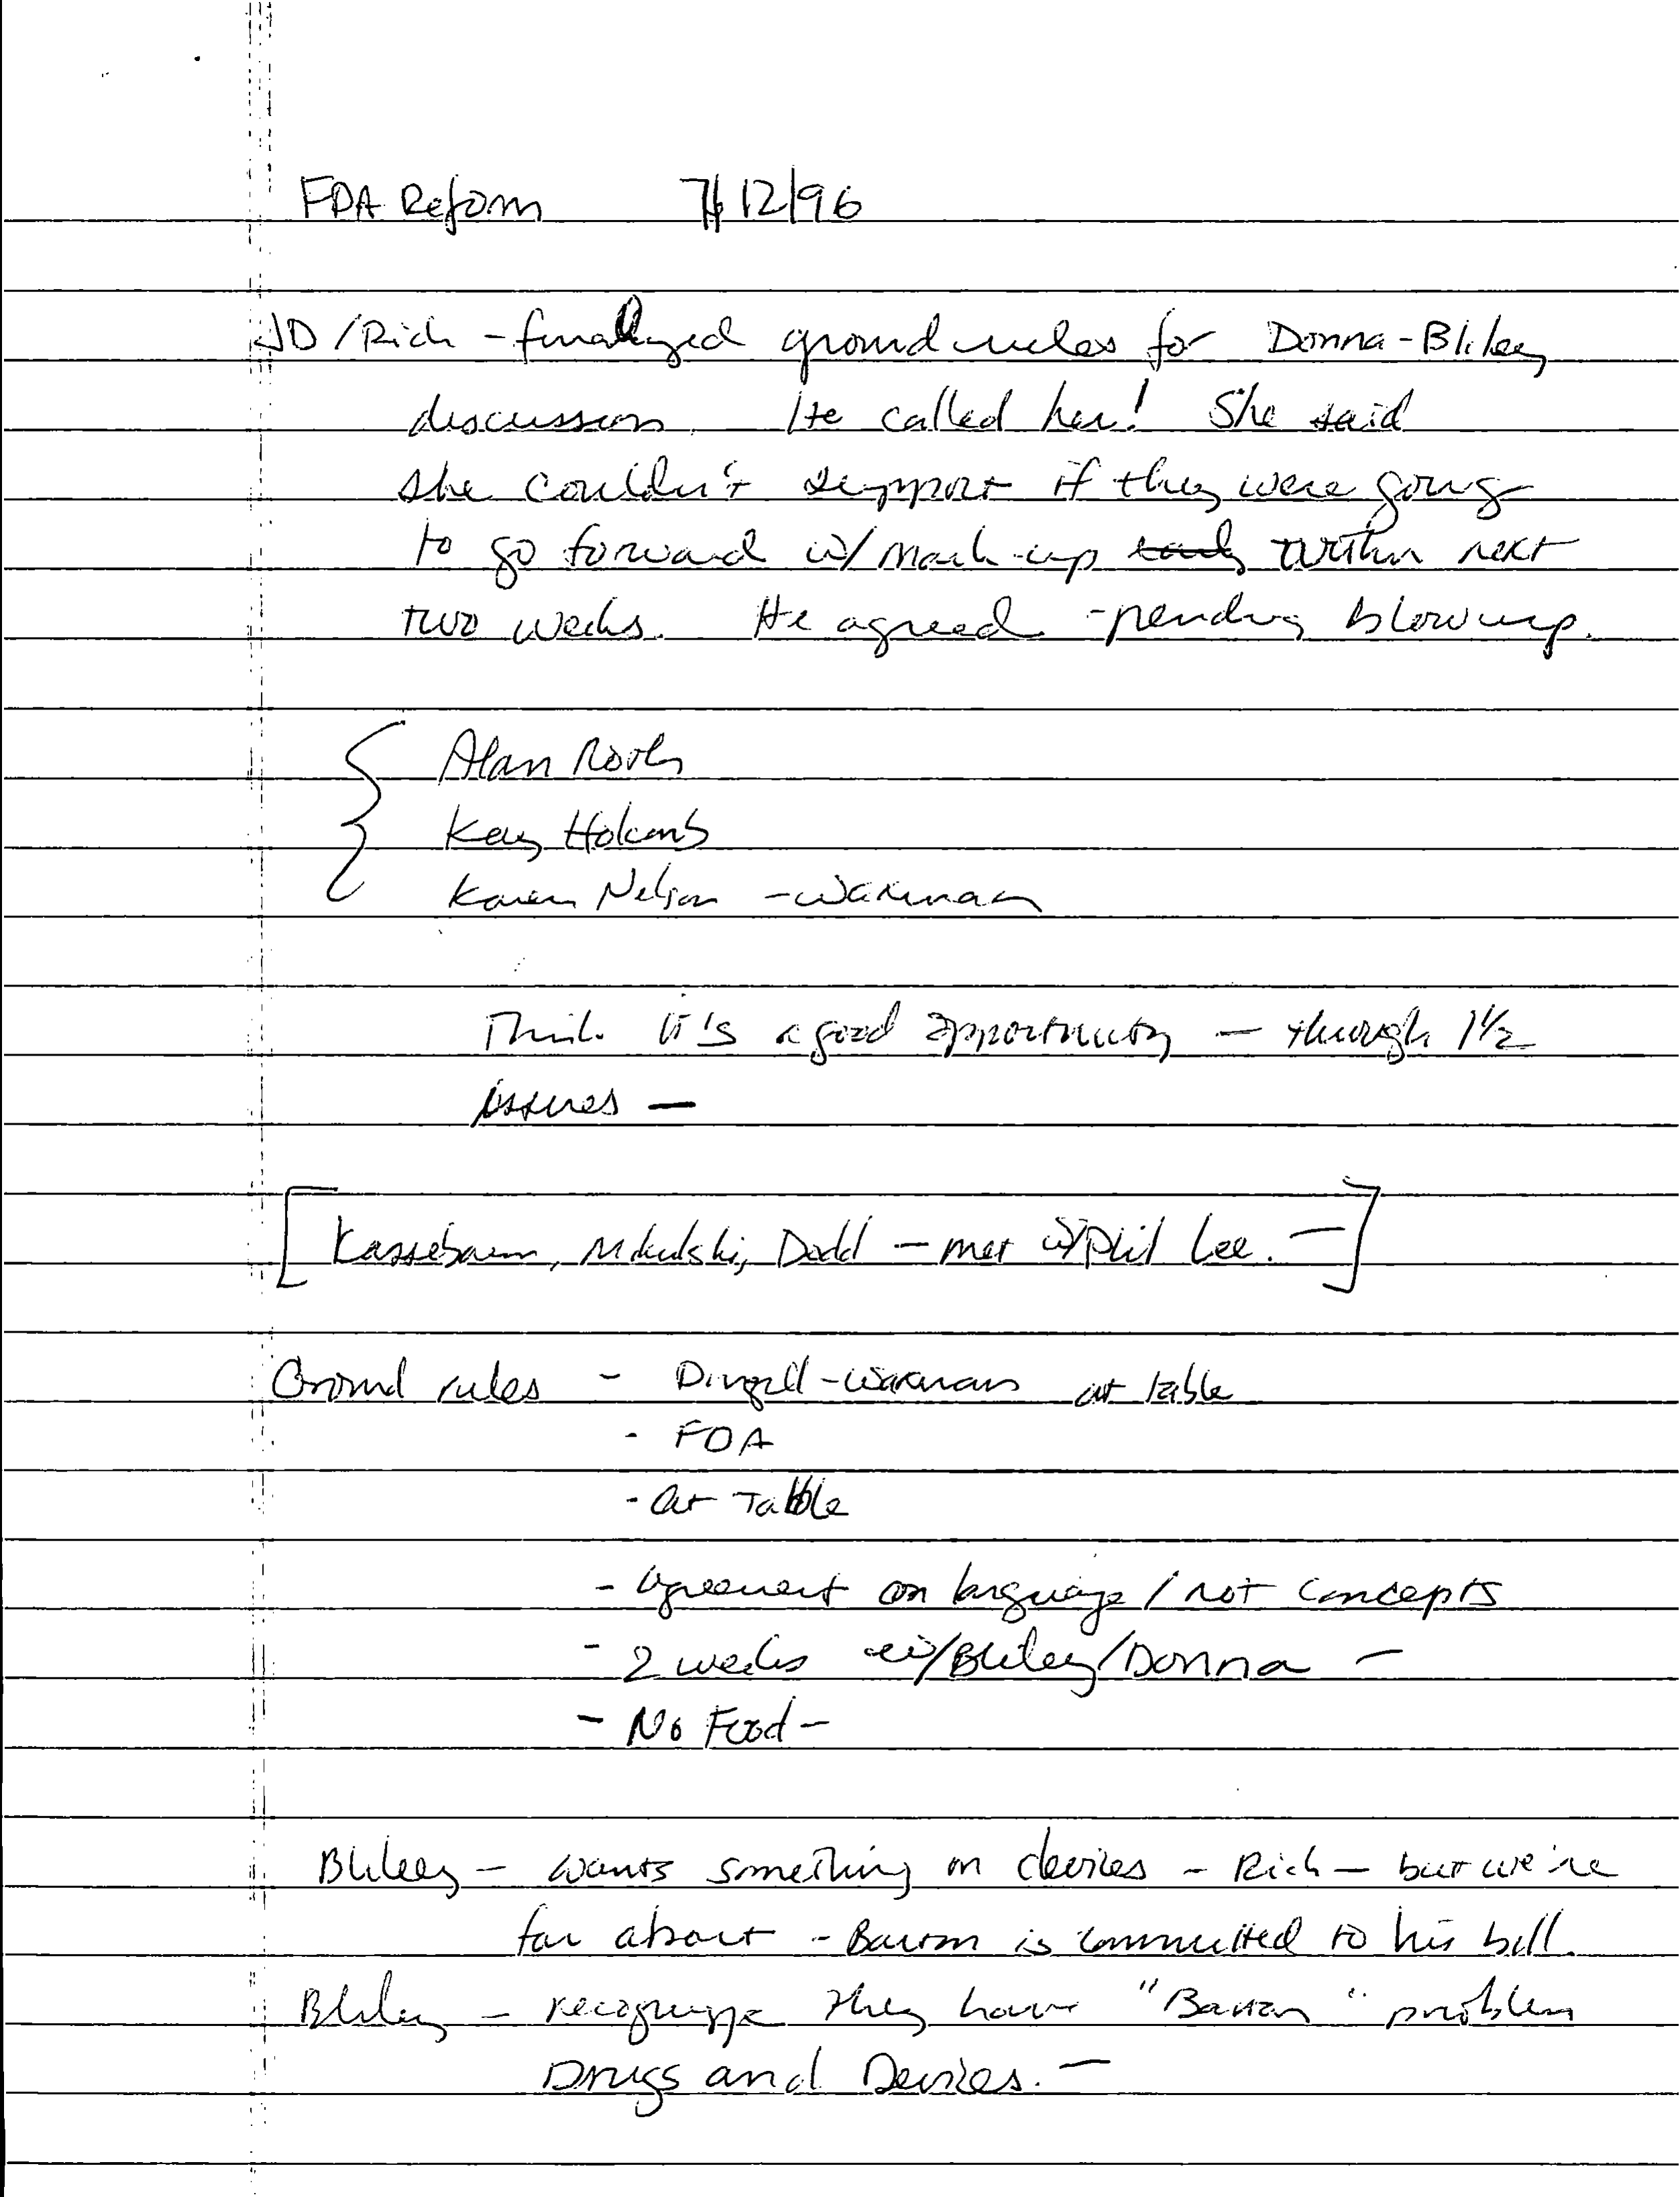 FDA Reform 7/12/96
JD/Rich - finalyzed ground rules for Donna-Bliley
discussion. He called her! She said
she couldn't support if they were going
to go forward w/ mark-up within next
two weeks. He agreed - pending blow up.
Alan Roth
Kay Holcomb
Karen Nelson - Waxman
Think it's a good opportunity - through 1½
issues —
[Kassebaum, Mikulski, Dodd - met w/ Phil Lee. —]
Ground rules - Dingell-Waxman at table
- FDA
- at table
- agreement on language / not concepts
- 2 weeks w/Bliley/Donna -
- No Food -
Bliley - wants something on devices - Rich - but we're
far apart - Barton is committed to his bill.
Bliley - recognize they have "Barton" problem
Drugs and Devices. -